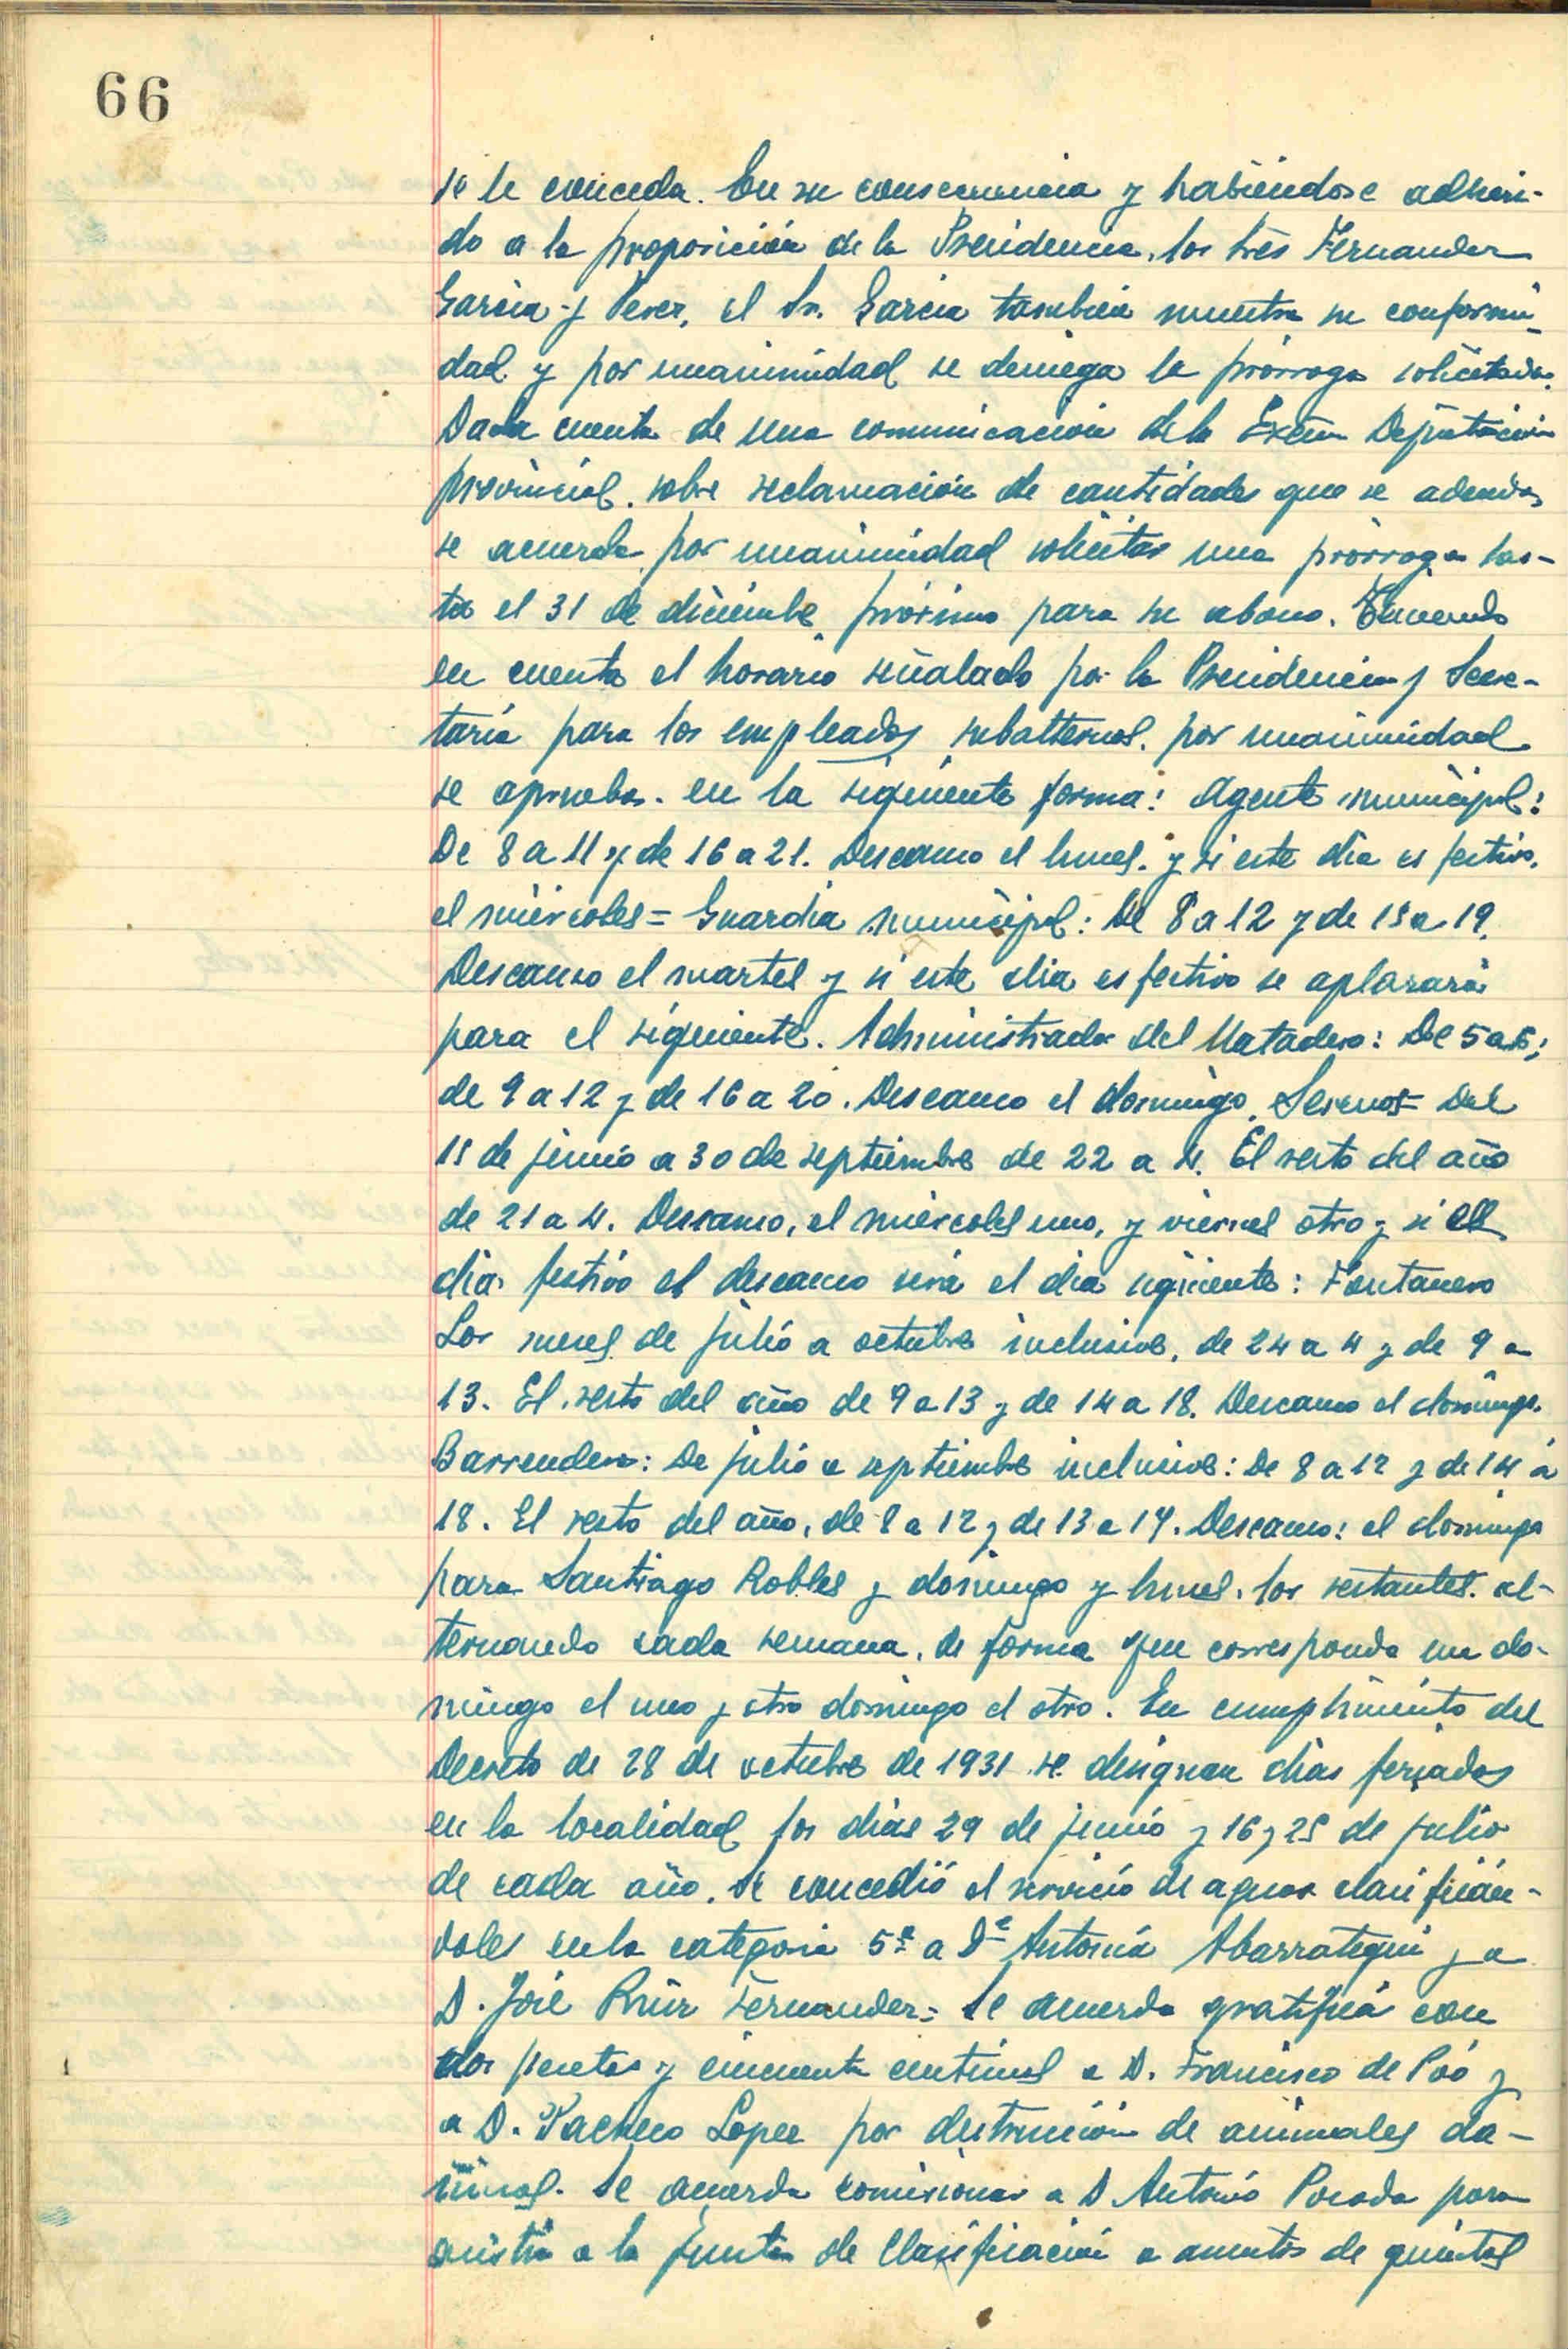 66
se le conceda. En su consecuencia y habiéndose adheri-
do a la proposición de la Presidencia, los Sres Fernandez
Garcia y Perez, el Sr. Garcia tambien muestra su conformi-
dad y por unanimidad se deniega la prórroga solicitada.
Dada cuenta de una comunicación de la Excma Diputación
provincial, sobre reclamación de cantidades que se adeudan
se acuerda por unanimidad solicitar una prórroga has-
ta el 31 de diciembre próximo para su abono. Teniendo
en cuenta el horario señalado por la Presidencia y Secre-
taría para los empleados subalternos, por unanimidad
se aprueba en la siguiente forma: Agente municipal:
De 8 a 11 y de 16 a 21. Descanso el lunes y si este dia es festivo,
el miércoles = Guardia municipal: De 8 a 12 y de 15 a 19.
Descanso el martes y si este dia es festivo se aplazará
para el siguiente. Administrador del Matadero: De 5 a 6;
de 9 a 12 y de 16 a 20. Descanso el domingo. Serenos = Del
15 de junio a 30 de septiembre de 22 a 4. El resto del año
de 21 a 4. Descanso, el miércoles uno, y viernes otro y si es
dia festivo el descanso será el dia siguiente: Fontanero
Los meses de julio a octubre inclusive, de 24 a 4 y de 9 a
13. El resto del año de 9 a 13 y de 14 a 18. Descanso el domingo.
Barrendero: De julio a septiembre inclusive: De 8 a 12 y de 14 a
18. El resto del año, de 8 a 12 y de 13 a 17. Descanso: el domingo
para Santiago Robles y domingo y lunes, los restantes, al-
ternando cada semana, de forma que corresponda un do-
mingo el uno y otro domingo el otro. En cumplimiento del
Decreto de 28 de octubre de 1931 se designan dias feriados
en la localidad los dias 29 de junio y 16 y 25 de julio
de cada año. Se concedió el servicio de aguas clasificán-
doles en la categoria 5ª a Dª Antonia Abarrategui y a
D. José Ruiz Fernandez = Se acuerda gratificá con
dos pesetas y cincuenta centimos a D. Francisco de Poó y
a D. Pacheco Lopez por destrucción de animales da-
ñinos. Se acuerda comisionar a D Antonio Posada para
asistir a la Junta de Clasificación a asuntos de quintas